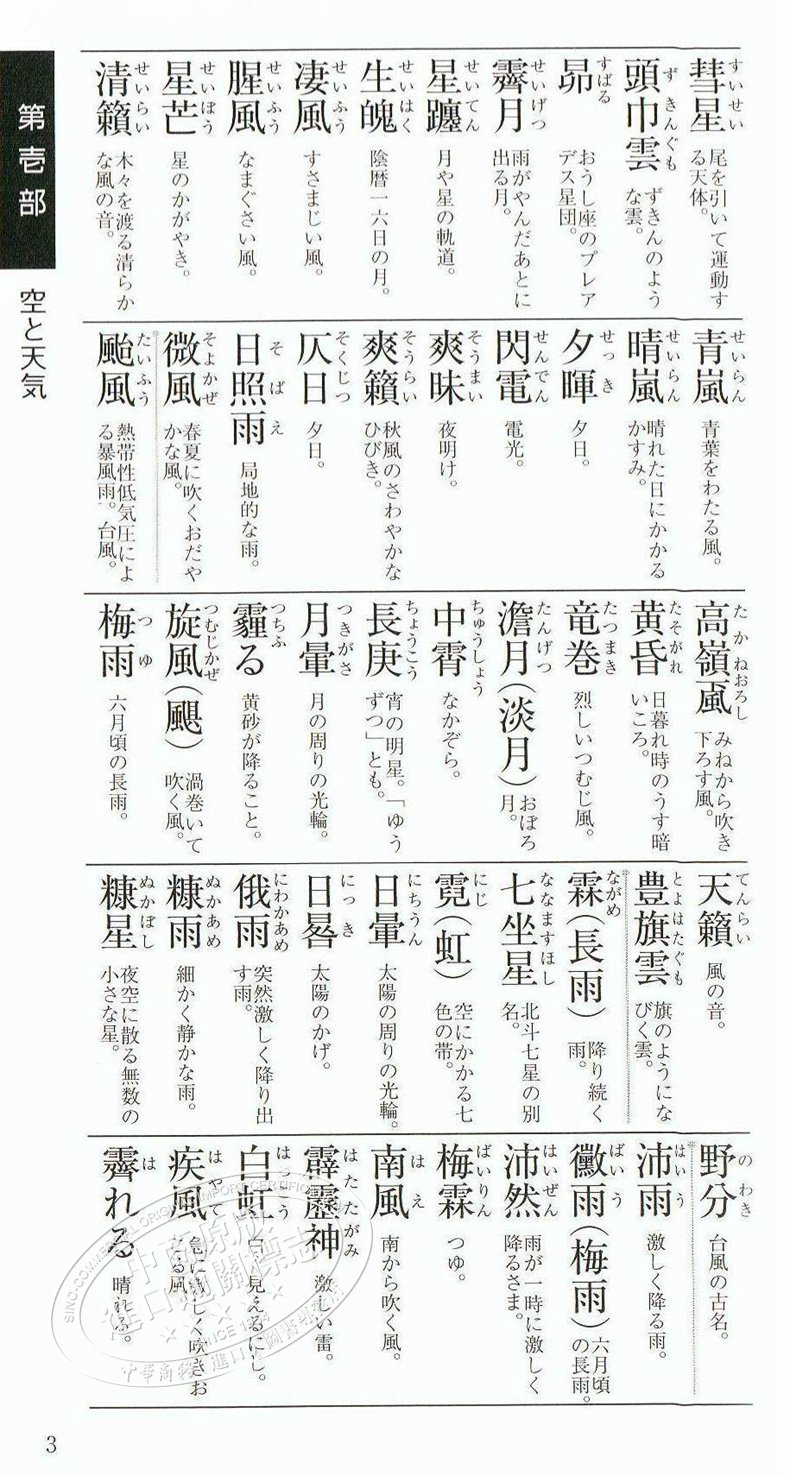 第壱部
空と天気
すいせい
彗星
尾を引いて運動す
る天体。
ずきんぐも
頭巾雲
ずきんのよう
な雲。
すばる
昴
おうし座のプレア
デス星団。
せいげつ
霽月
雨がやんだあとに
出る月。
せいてん
星躔
月や星の軌道。
せいはく
生魄
陰暦一六日の月。
せいふう
凄風
すさまじい風。
せいふう
腥風
なまぐさい風。
せいぼう
星芒
星のかがやき。
せいらい
清籟
木々を渡る清らか
な風の音。
せいらん
青嵐
青葉をわたる風。
せいらん
晴嵐
晴れた日にかかる
かすみ。
せっき
夕暉
夕日。
せんでん
閃電
電光。
そうまい
爽昧
夜明け。
そうらい
爽籟
秋風のさわやかな
ひびき。
そくじつ
仄日
夕日。
そばえ
日照雨
局地的な雨。
そよかぜ
微風
春夏に吹くおだや
かな風。
たいふう
颱風
熱帯性低気圧によ
る暴風雨。台風。
たかねおろし
高嶺颪
みねから吹き
下ろす風。
たそがれ
黄昏
日暮れ時のうす暗
いころ。
たつまき
竜巻
烈しいつむじ風。
たんげつ
澹月(淡月)
おぼろ
月。
ちゅうしょう
中霄
なかぞら。
ちょうこう
長庚
宵の明星。「ゆう
ずつ」とも。
つきがさ
月暈
月の周りの光輪。
つちふ
霾る
黄砂が降ること。
つむじかぜ
旋風(颶)
渦巻いて
吹く風。
つゆ
梅雨
六月頃の長雨。
てんらい
天籟
風の音。
とよはたぐも
豊旗雲
旗のようにな
びく雲。
ながめ
霖(長雨)
降り続く
雨。
ななますほし
七坐星
北斗七星の別
名。
にじ
霓(虹)
空にかかる七
色の帯。
にちうん
日暈
太陽の周りの光輪。
にっき
日晷
太陽のかげ。
にわかあめ
俄雨
突然激しく降り出
す雨。
ぬかあめ
糠雨
細かく静かな雨。
ぬかぼし
糠星
夜空に散る無数の
小さな星。
のわき
野分
台風の古名。
はいう
沛雨
激しく降る雨。
ばいう
黴雨(梅雨)
六月頃
の長雨。
はいぜん
沛然
雨が一時に激しく
降るさま。
ばいりん
梅霖
つゆ。
はえ
南風
南から吹く風。
はたたがみ
霹靂神
激しい雷。
はっこう
白虹
白く見えるにじ。
はやて
疾風
急に激しく吹きお
こる風。
は
霽れる
晴れる。
SINO-COMMERCIAL ORIGINAL IMPORT CERTIFICATION
中商原版
3